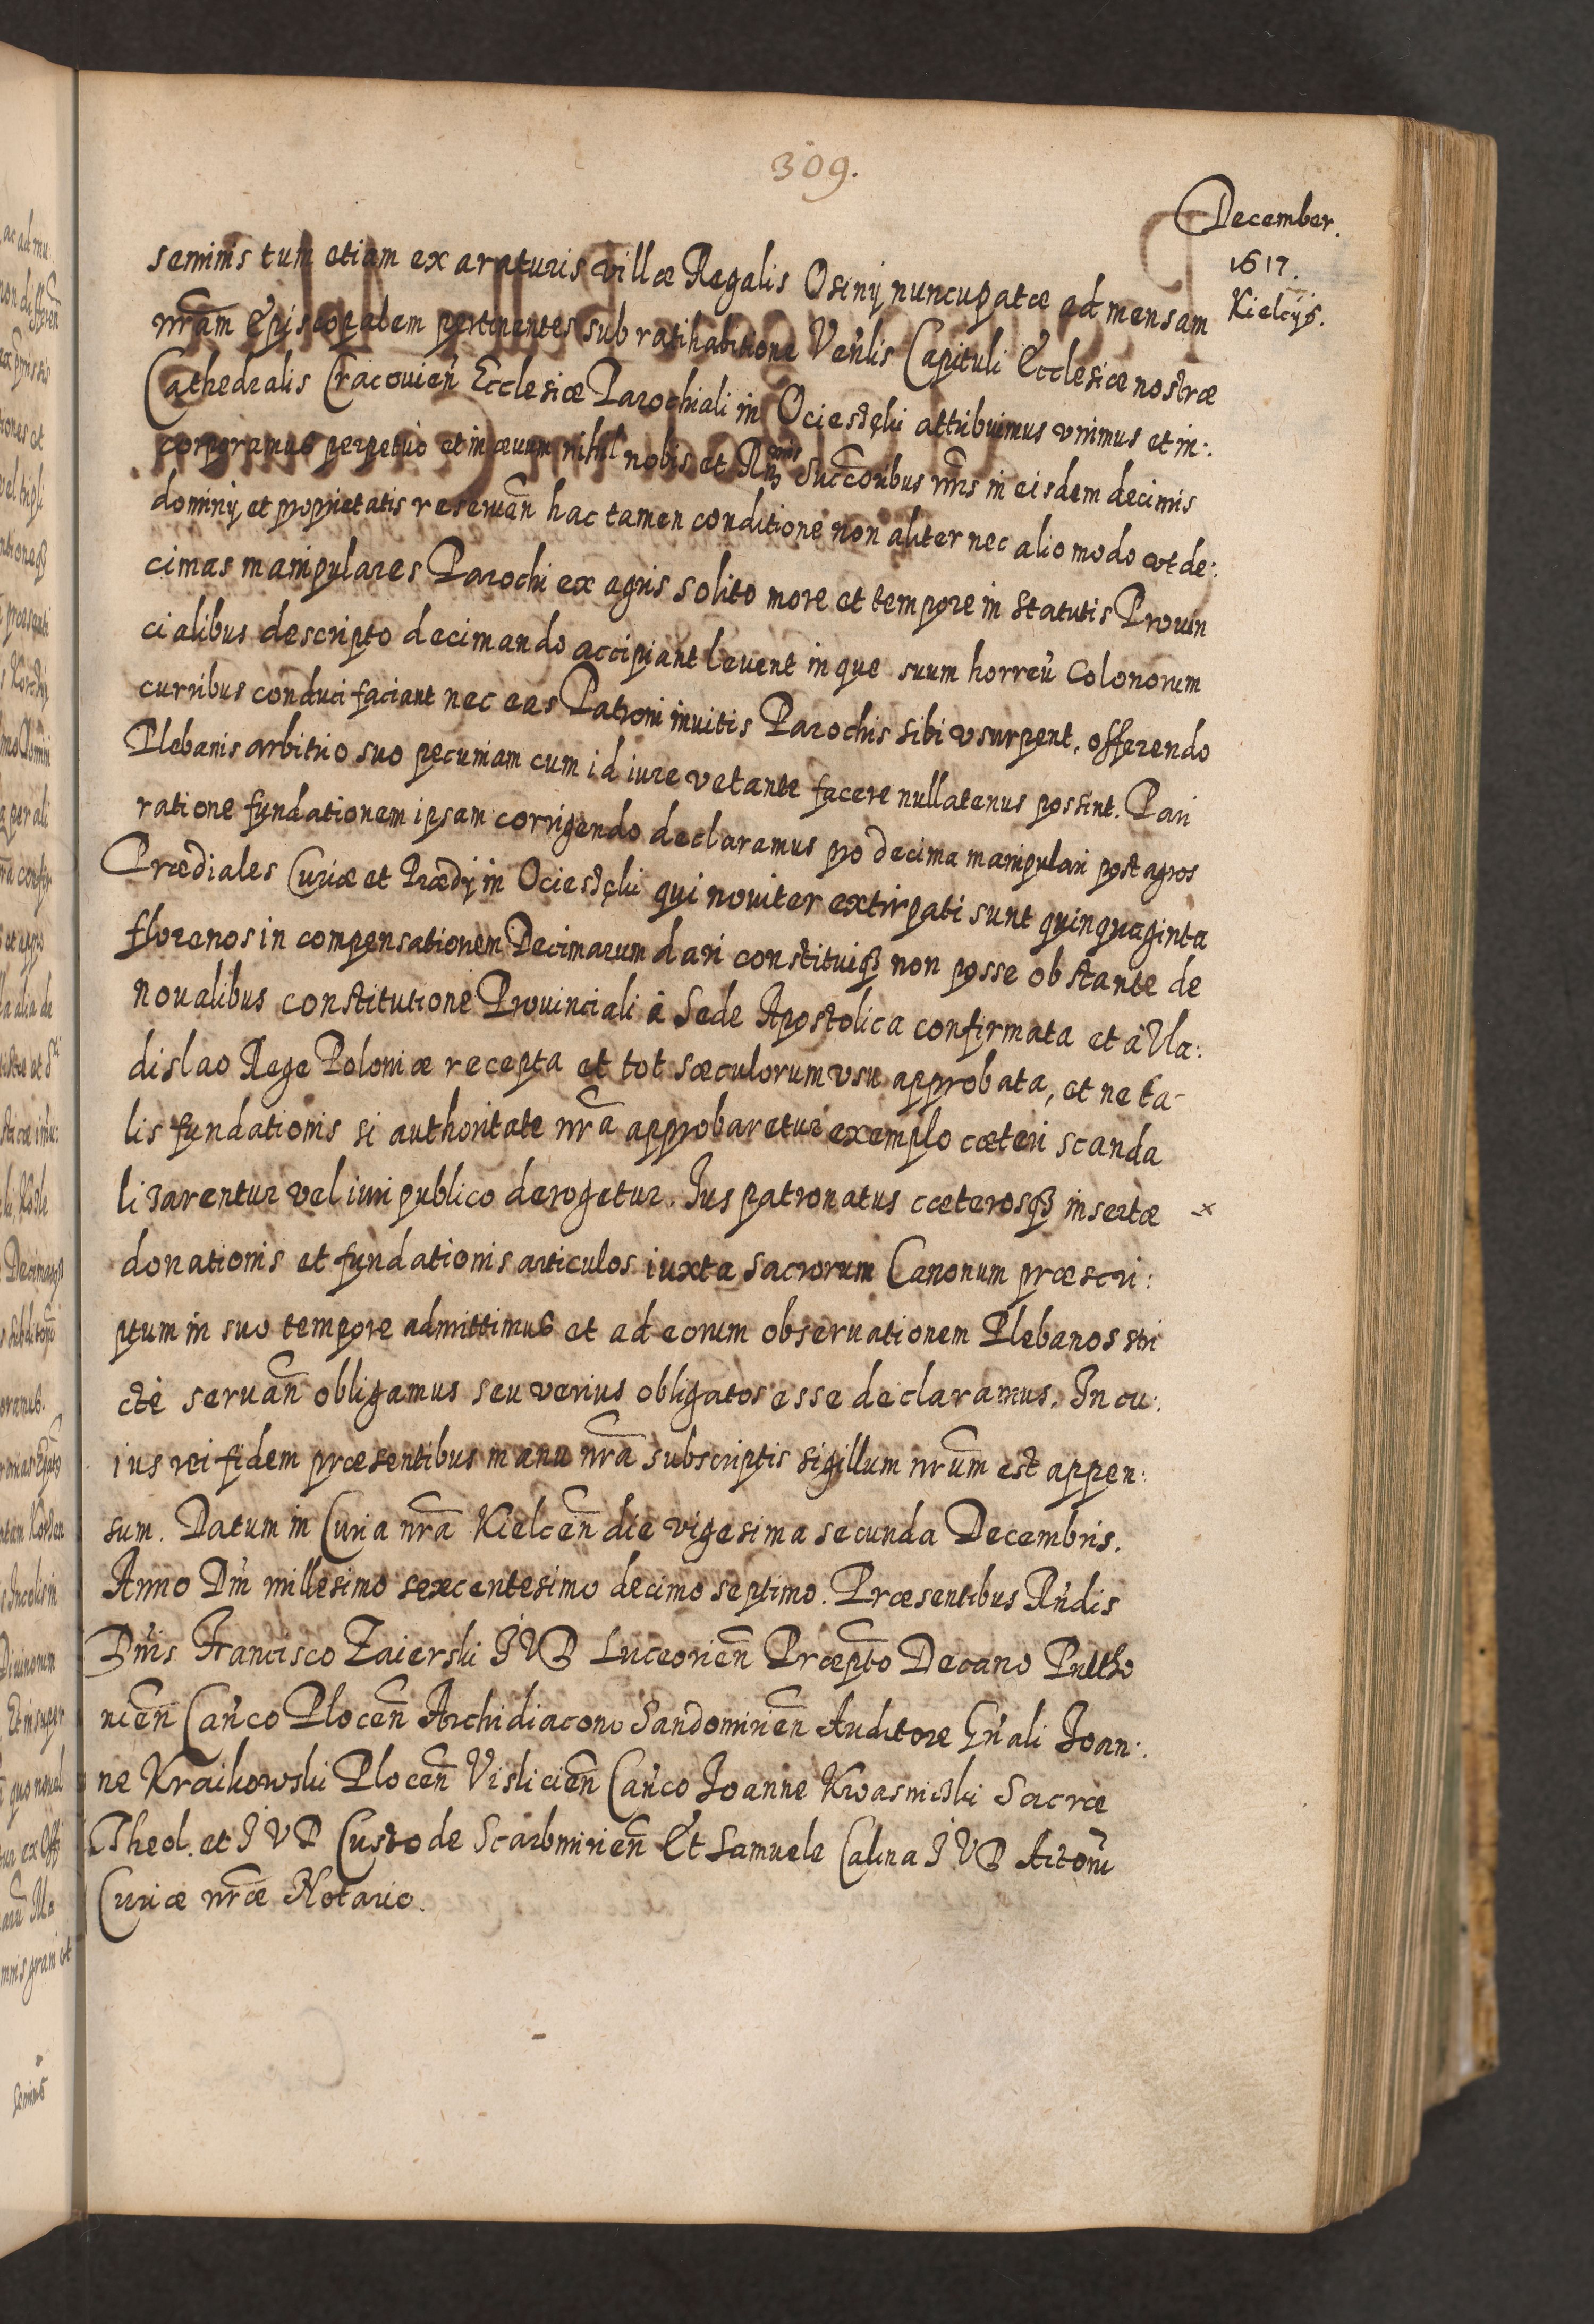 309.
December.
1617.
Kielcijs.
seminis tum etiam ex araturis villæ Regalis Osiny nuncupatæ ad mensam
nr̃am Episcopalem pertinentes sub ratihabitione Veñlis Capituli Ecclesiæ nostræ
Cathedralis Cracouieñ Ecclesiæ Parochiali in Ociesęki attribuimus vnimus et in:
corporamus perpetuò et in æuum nihil nobis et Rm̃is Succ̃oribus nr̃is in eisdem decimis
dominij et proprietatis reseruan̄ hac tamen conditione non aliter nec alio modo vt de:
cimas manipulares Parochi ex agris solito more et tempore in statutis Prouin
cialibus descripto decimando accipiant leuent in que suum horreũ Colonorum
curribus conduci faciant nec eas Patroni inuitis Parochis sibi vsurpent, offerendo
Plebanis arbitrio suo pecuniam cum id iure vetante facere nullatenus possint. Pari
ratione fundationem ipsam corrigendo declaramus pro decima manipulari post agros
Prædiales Curiæ et Prædij in Ociesęki qui nouiter extirpati sunt quinquaginta
florenos in compensationem Decimarum dari constituiqꝫ non posse obstante de
noualibus constitutione Prouinciali à Sede Apostolica confirmata et à Vla:
dislao Rege Poloniæ recepta et tot sæculorum vsu approbata, et ne ta-
lis fundationis si authoritate nr̃a approbaretur exemplo cæteri scanda
lizarentur vel iuri publico derogetur. Ius patronatus cæterosqꝫ insertæ
donationis et fundationis articulos iuxta sacrorum Canonum præscri:
ptum in suo tempore admittimus et ad eorum obseruationem Plebanos stri
ctè seruan̄ obligamus seu verius obligatos esse declaramus. In cu:
ius rei fidem præsentibus manu nr̃a subscriptis sigillum nr̃um est appen:
sum. Datum in Curia nr̃a Kielcen̄ die vigesima secunda Decembris.
Anno Dn̄i millesimo sexcentesimo decimo septimo. Præsentibus Rñdis
Dñis Francisco Zaierski IVD Luceorien̄ Præpt̃o Decano Pultho
uien̄ Cañco Plocen̄ Archidiacono Sandomirien̄ Auditore Gñali Ioan:
ne Kraikowski Plocen̄ Vislicien̄ Cañco Ioanne Kwasnicki Sacræ
Theol. et IVD Custode Scarbimirien̄ Et Samuele Calina IVD Actorũ
Curiæ nr̃æ Notario.